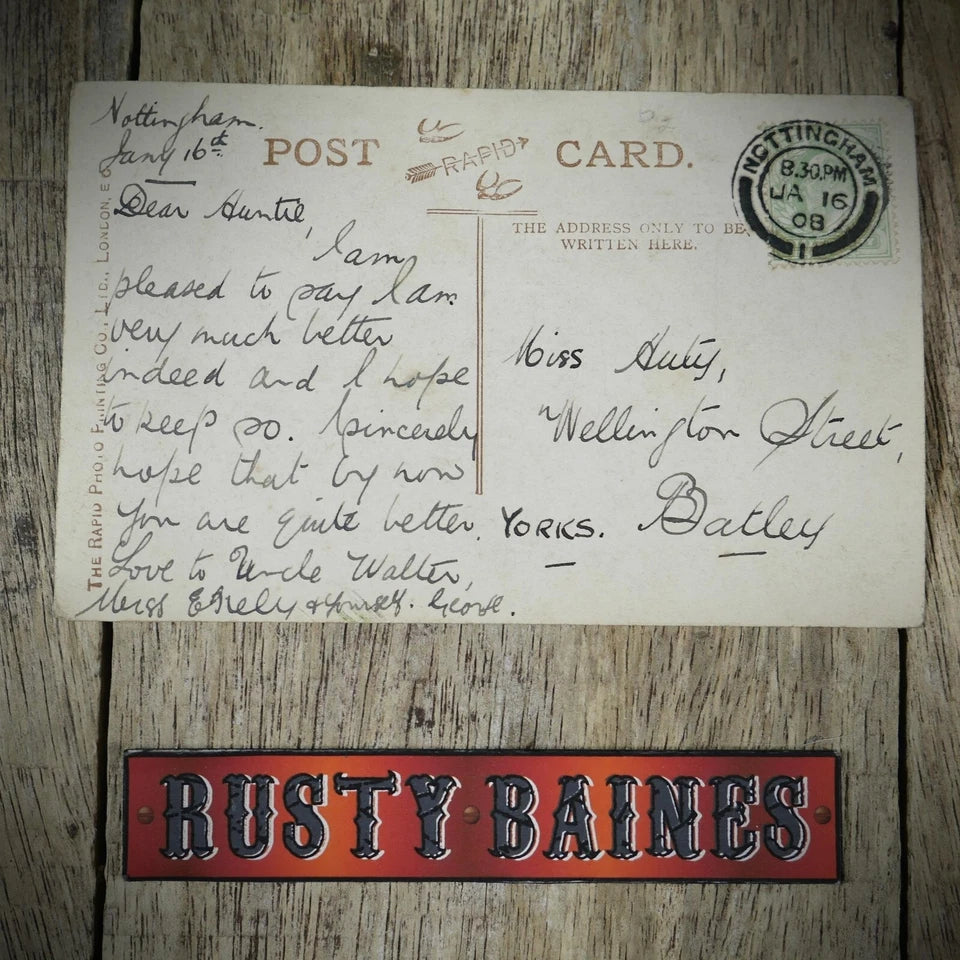 Nottingham.
Jany 16th
POST CARD.
RAPID
Dear Auntie,
I am
pleased to say I am
very much better
indeed and I hope
to keep so. I sincerely
hope that by now
you are quite better.
Love to Uncle Walter,
Miss & yourself. George.
THE RAPID PHOTO PRINTING CO., LTD., LONDON, E
NOTTINGHAM
8.30 PM
JA 16
08
1
THE ADDRESS ONLY TO BE
WRITTEN HERE.
Miss
Wellington Street,
Batley
YORKS.
RUSTY BAINES